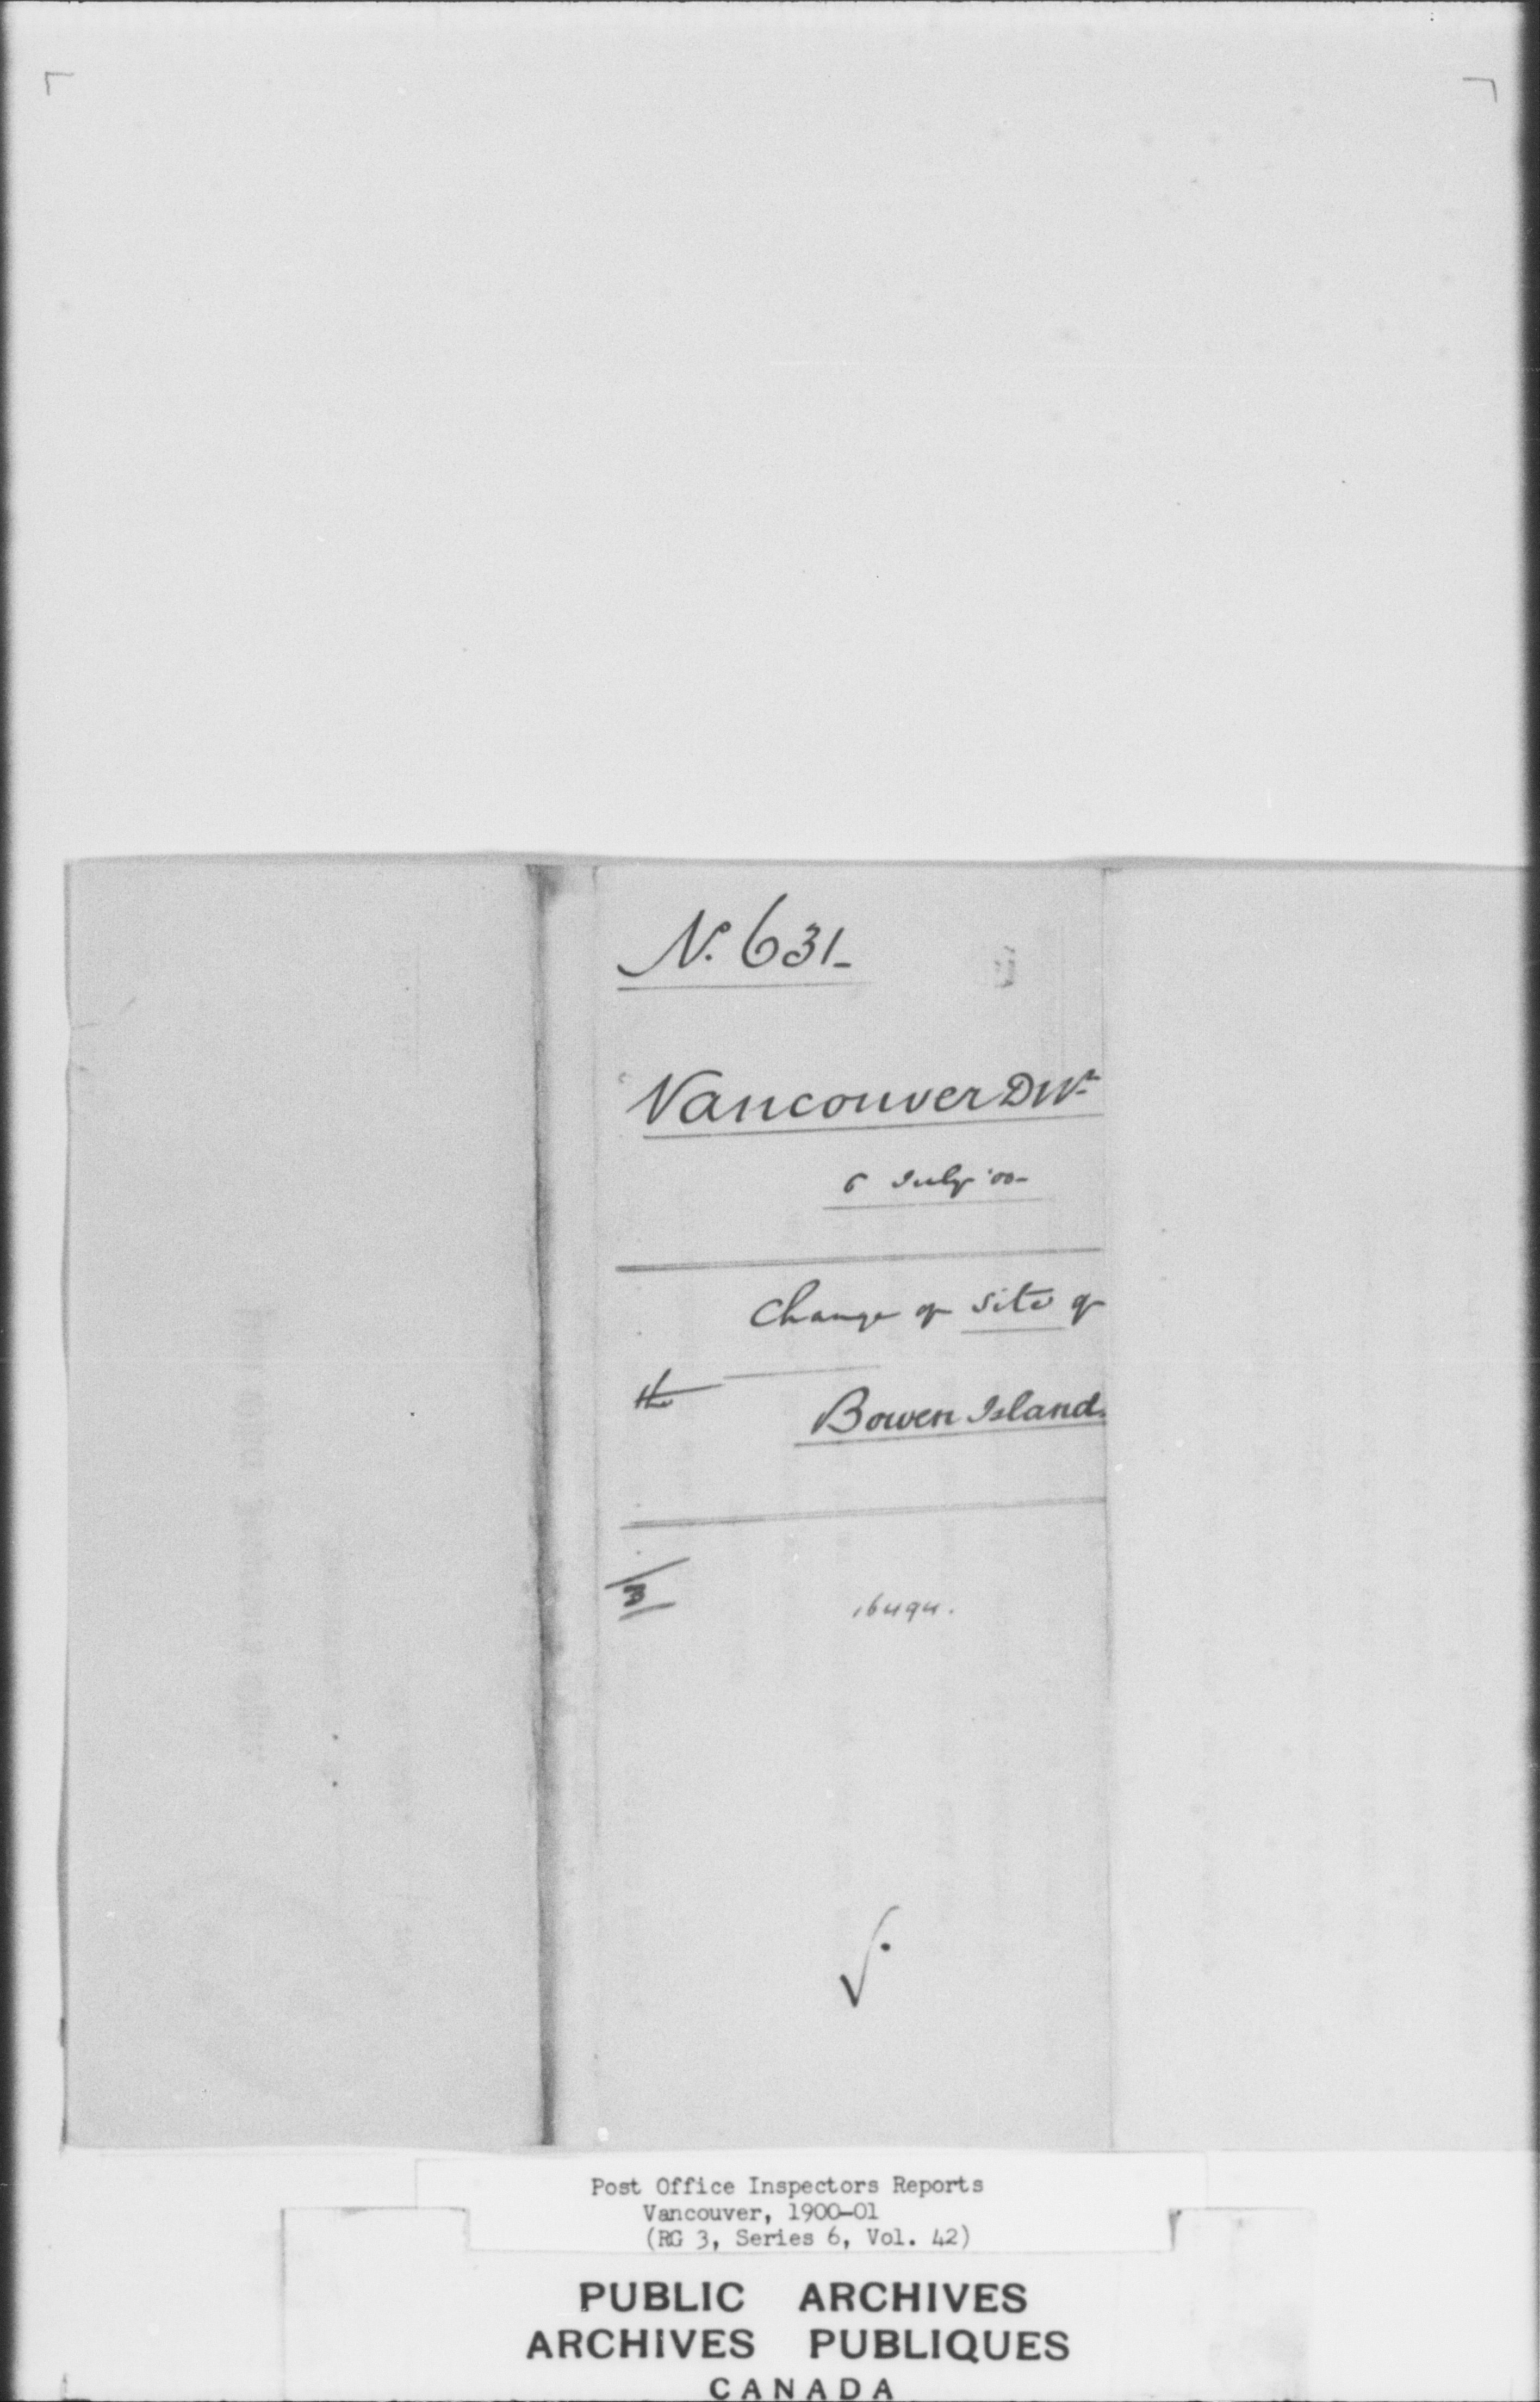 No. 631-
Vancouver Divn
6 July '00-
Change of Site of
the
Bowen Island.
3
16494.
Post Office Inspectors Reports
Vancouver, 1900-01
(RG 3, Series 6, Vol. 42)
PUBLIC ARCHIVES
ARCHIVES PUBLIQUES
CANADA